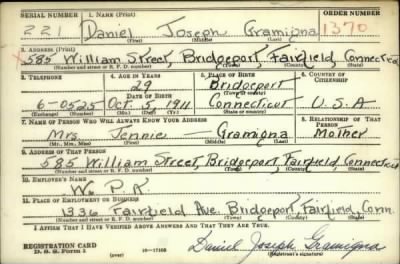 SERIAL NUMBER 1. NAME (Print) ORDER NUMBER
221 Daniel Joseph Gramigna 1370
(First) (Middle) (Last)
2. ADDRESS (Print)
585 William Street, Bridgeport, Fairfield, Connecticut
(Number and street or R. F. D. number) (Town) (County) (State)
3. TELEPHONE 4. AGE IN YEARS 5. PLACE OF BIRTH 6. COUNTRY OF CITIZENSHIP
29 Bridgeport
DATE OF BIRTH (Town or county)
6-0525 Oct. 5, 1911 Connecticut U.S.A
(Exchange) (Number) (Mo.) (Day) (Yr.) (State or country)
7. NAME OF PERSON WHO WILL ALWAYS KNOW YOUR ADDRESS 8. RELATIONSHIP OF THAT PERSON
Mrs. Jennie — Gramigna Mother
(Mr., Mrs., Miss) (First) (Middle) (Last)
9. ADDRESS OF THAT PERSON
585 William Street, Bridgeport, Fairfield, Connecticut
(Number and street or R. F. D. number) (Town) (County) (State)
10. EMPLOYER'S NAME
W. P. A
11. PLACE OF EMPLOYMENT OR BUSINESS
1336 Fairfield Ave. Bridgeport, Fairfield, Conn.
(Number and street or R. F. D. number) (Town) (County) (State)
I AFFIRM THAT I HAVE VERIFIED ABOVE ANSWERS AND THAT THEY ARE TRUE.
REGISTRATION CARD
D. S. S. Form 1 (over) 16—17105 Daniel Joseph Gramigna
(Registrant's signature)